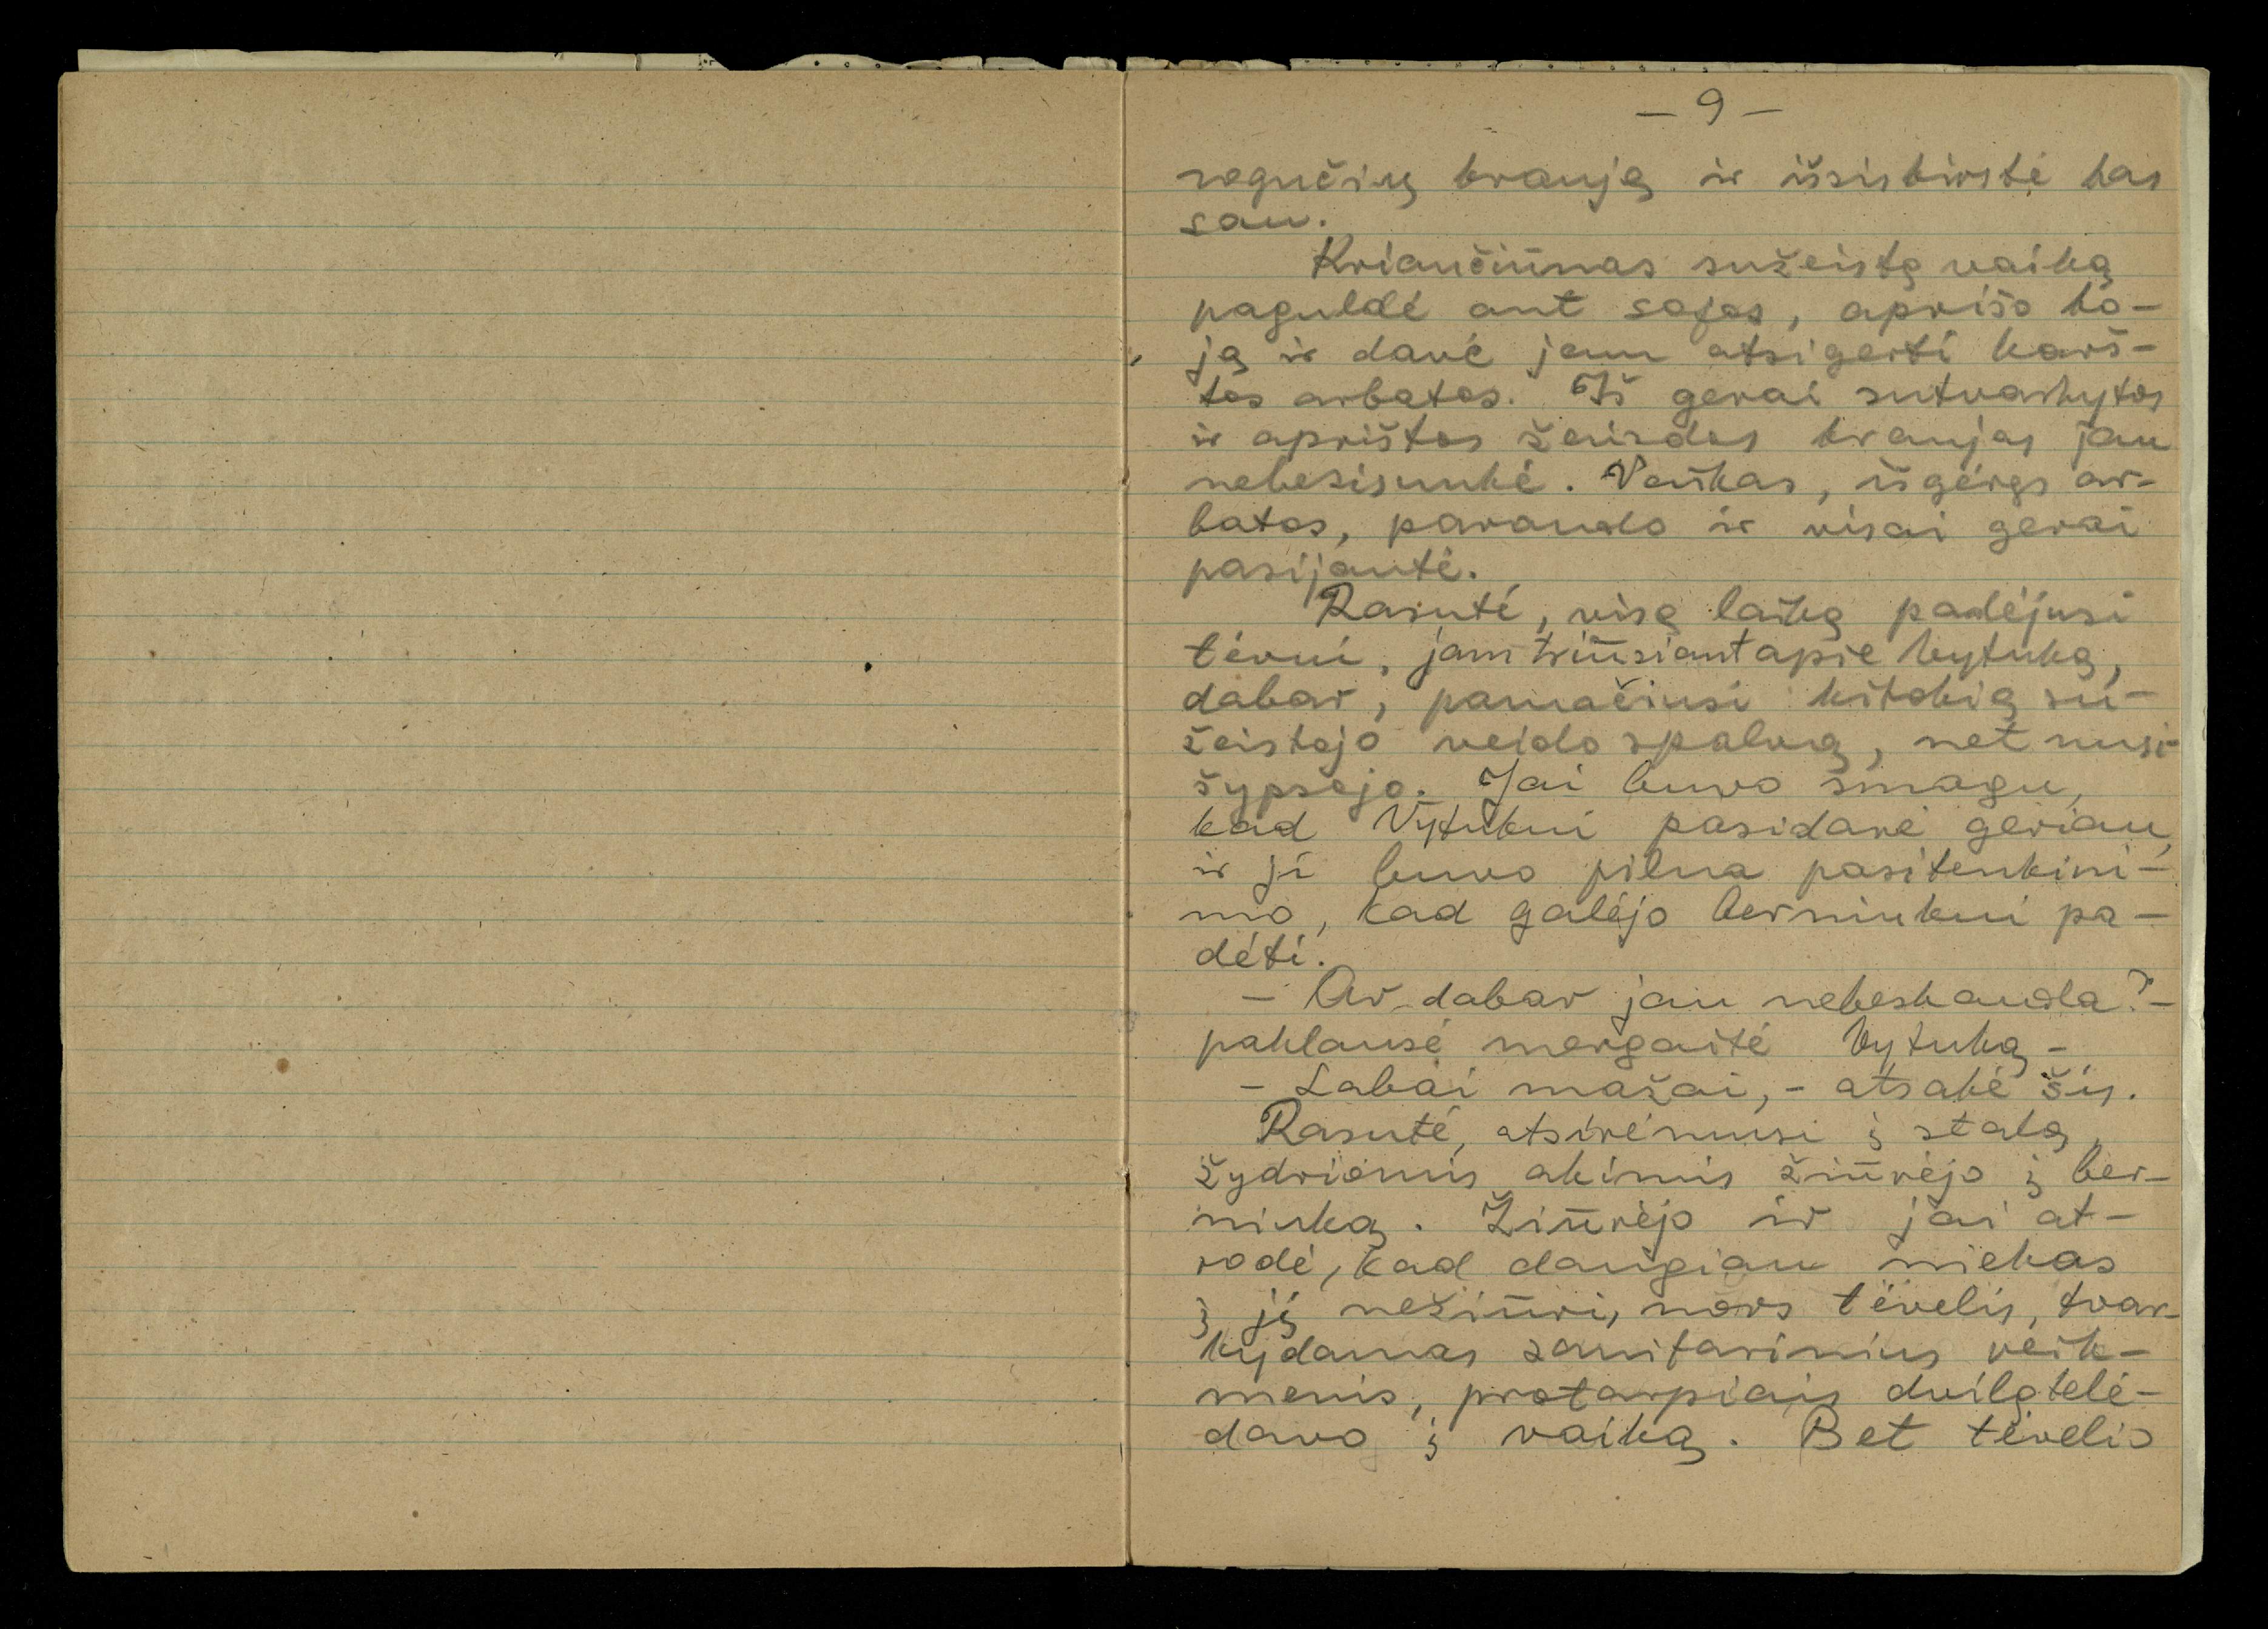 – 9 –
rogučių kraują ir išsiskirstė kas
sau.
Kriaučiūnas sužeistą vaiką
paguldė ant sofos, aprišo ko-
ją ir davė jam atsigerti karš-
tos arbatos. Iš gerai sutvarkytos
ir aprištos žaizdos kraujas jau
nebesisunkė. Vaikas, išgėręs ar-
batos, paraudo ir visai gerai
pasijautė.
Rasutė, visą laiką padėjusi
tėvui, jam triūsiant apie Vytuką,
dabar, pamačiusi kitokią su-
žeistojo veido spalvą, net nusi-
šypsojo. Jai buvo smagu,
kad Vytukui pasidarė geriau,
ir ji buvo pilna pasitenkini-
mo, kad galėjo berniukui pa-
dėti.
– Ar dabar jau nebeskauda? –
paklausė mergaitė Vytuką –
– Labai mažai, – atsakė šis.
Rasutė, atsirėmusi į stalą,
žydriomis akimis žiūrėjo į ber-
niuką. Žiūrėjo ir jai at-
rodė, kad daugiau niekas
į jį nežiūri, nors tėvelis, tvar-
kydamas sanitarinius reik-
menis, protarpiais dvilgtelė-
davo į vaiką. Bet tėvelis